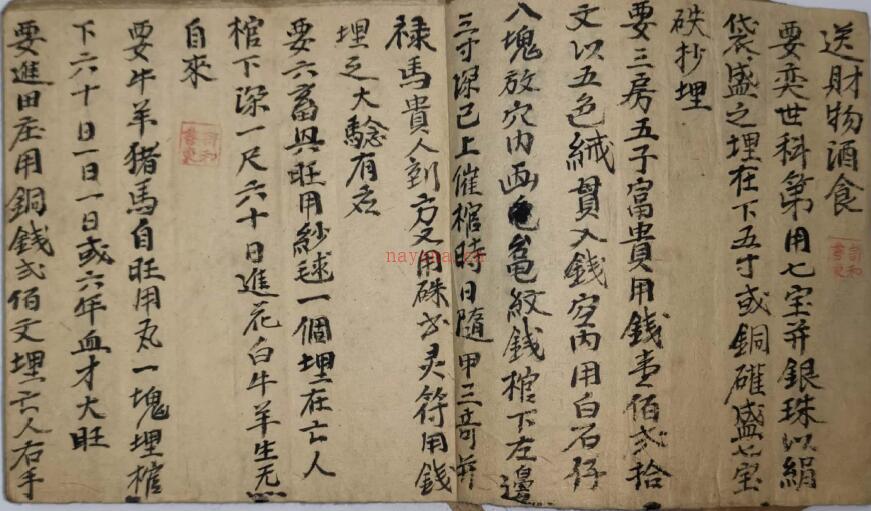 送財物酒食
要奕世科第用七宝并銀珠以絹
袋盛之埋在下五寸或銅確盛七宝
砆抄埋
要三房五子富貴用錢壹佰弍拾
文以五色絨貫入錢空內用白石仔
八塊放穴內画龟紋錢棺下左邊
三寸深已上催棺時日隨甲三奇并
禄馬貴人到方又用硃書灵符用錢
埋之大驗有名
要六畜興旺用紗毬一個埋在亡人
棺下深一尺六十日進花白牛羊生炁
自來
要牛羊猪馬自旺用瓦一塊埋棺
下六十日一日一日或六年血才大旺
要進田庄用銅錢弍佰文埋亡人右手